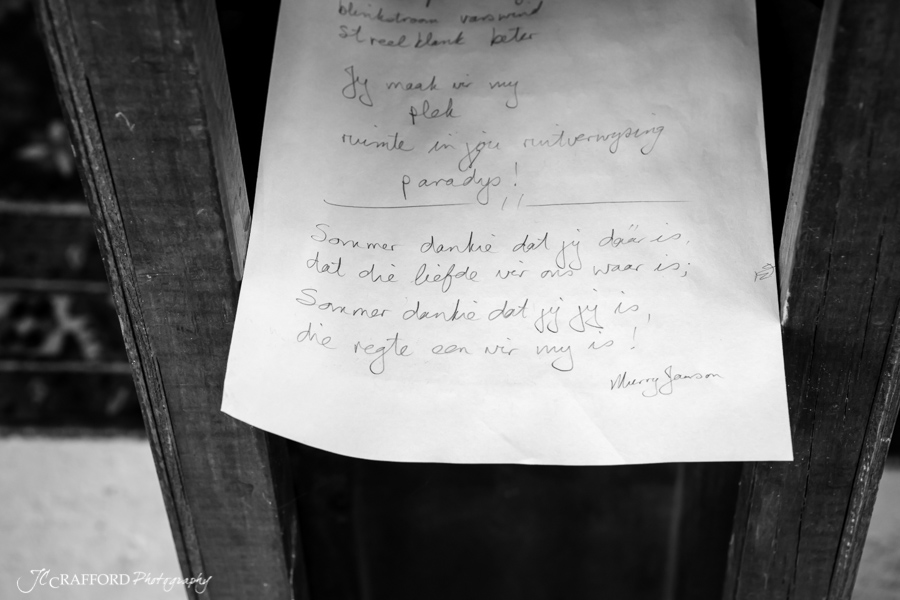 streel blank beter
Jy maak vir my
plek
ruimte in jou ruitverwysing
paradys!
Sommer dankie dat jy daar is,
dat die liefde vir ons waar is;
Sommer dankie dat jy jy is,
die regte een vir my is!
JC CRAFFORD Photography